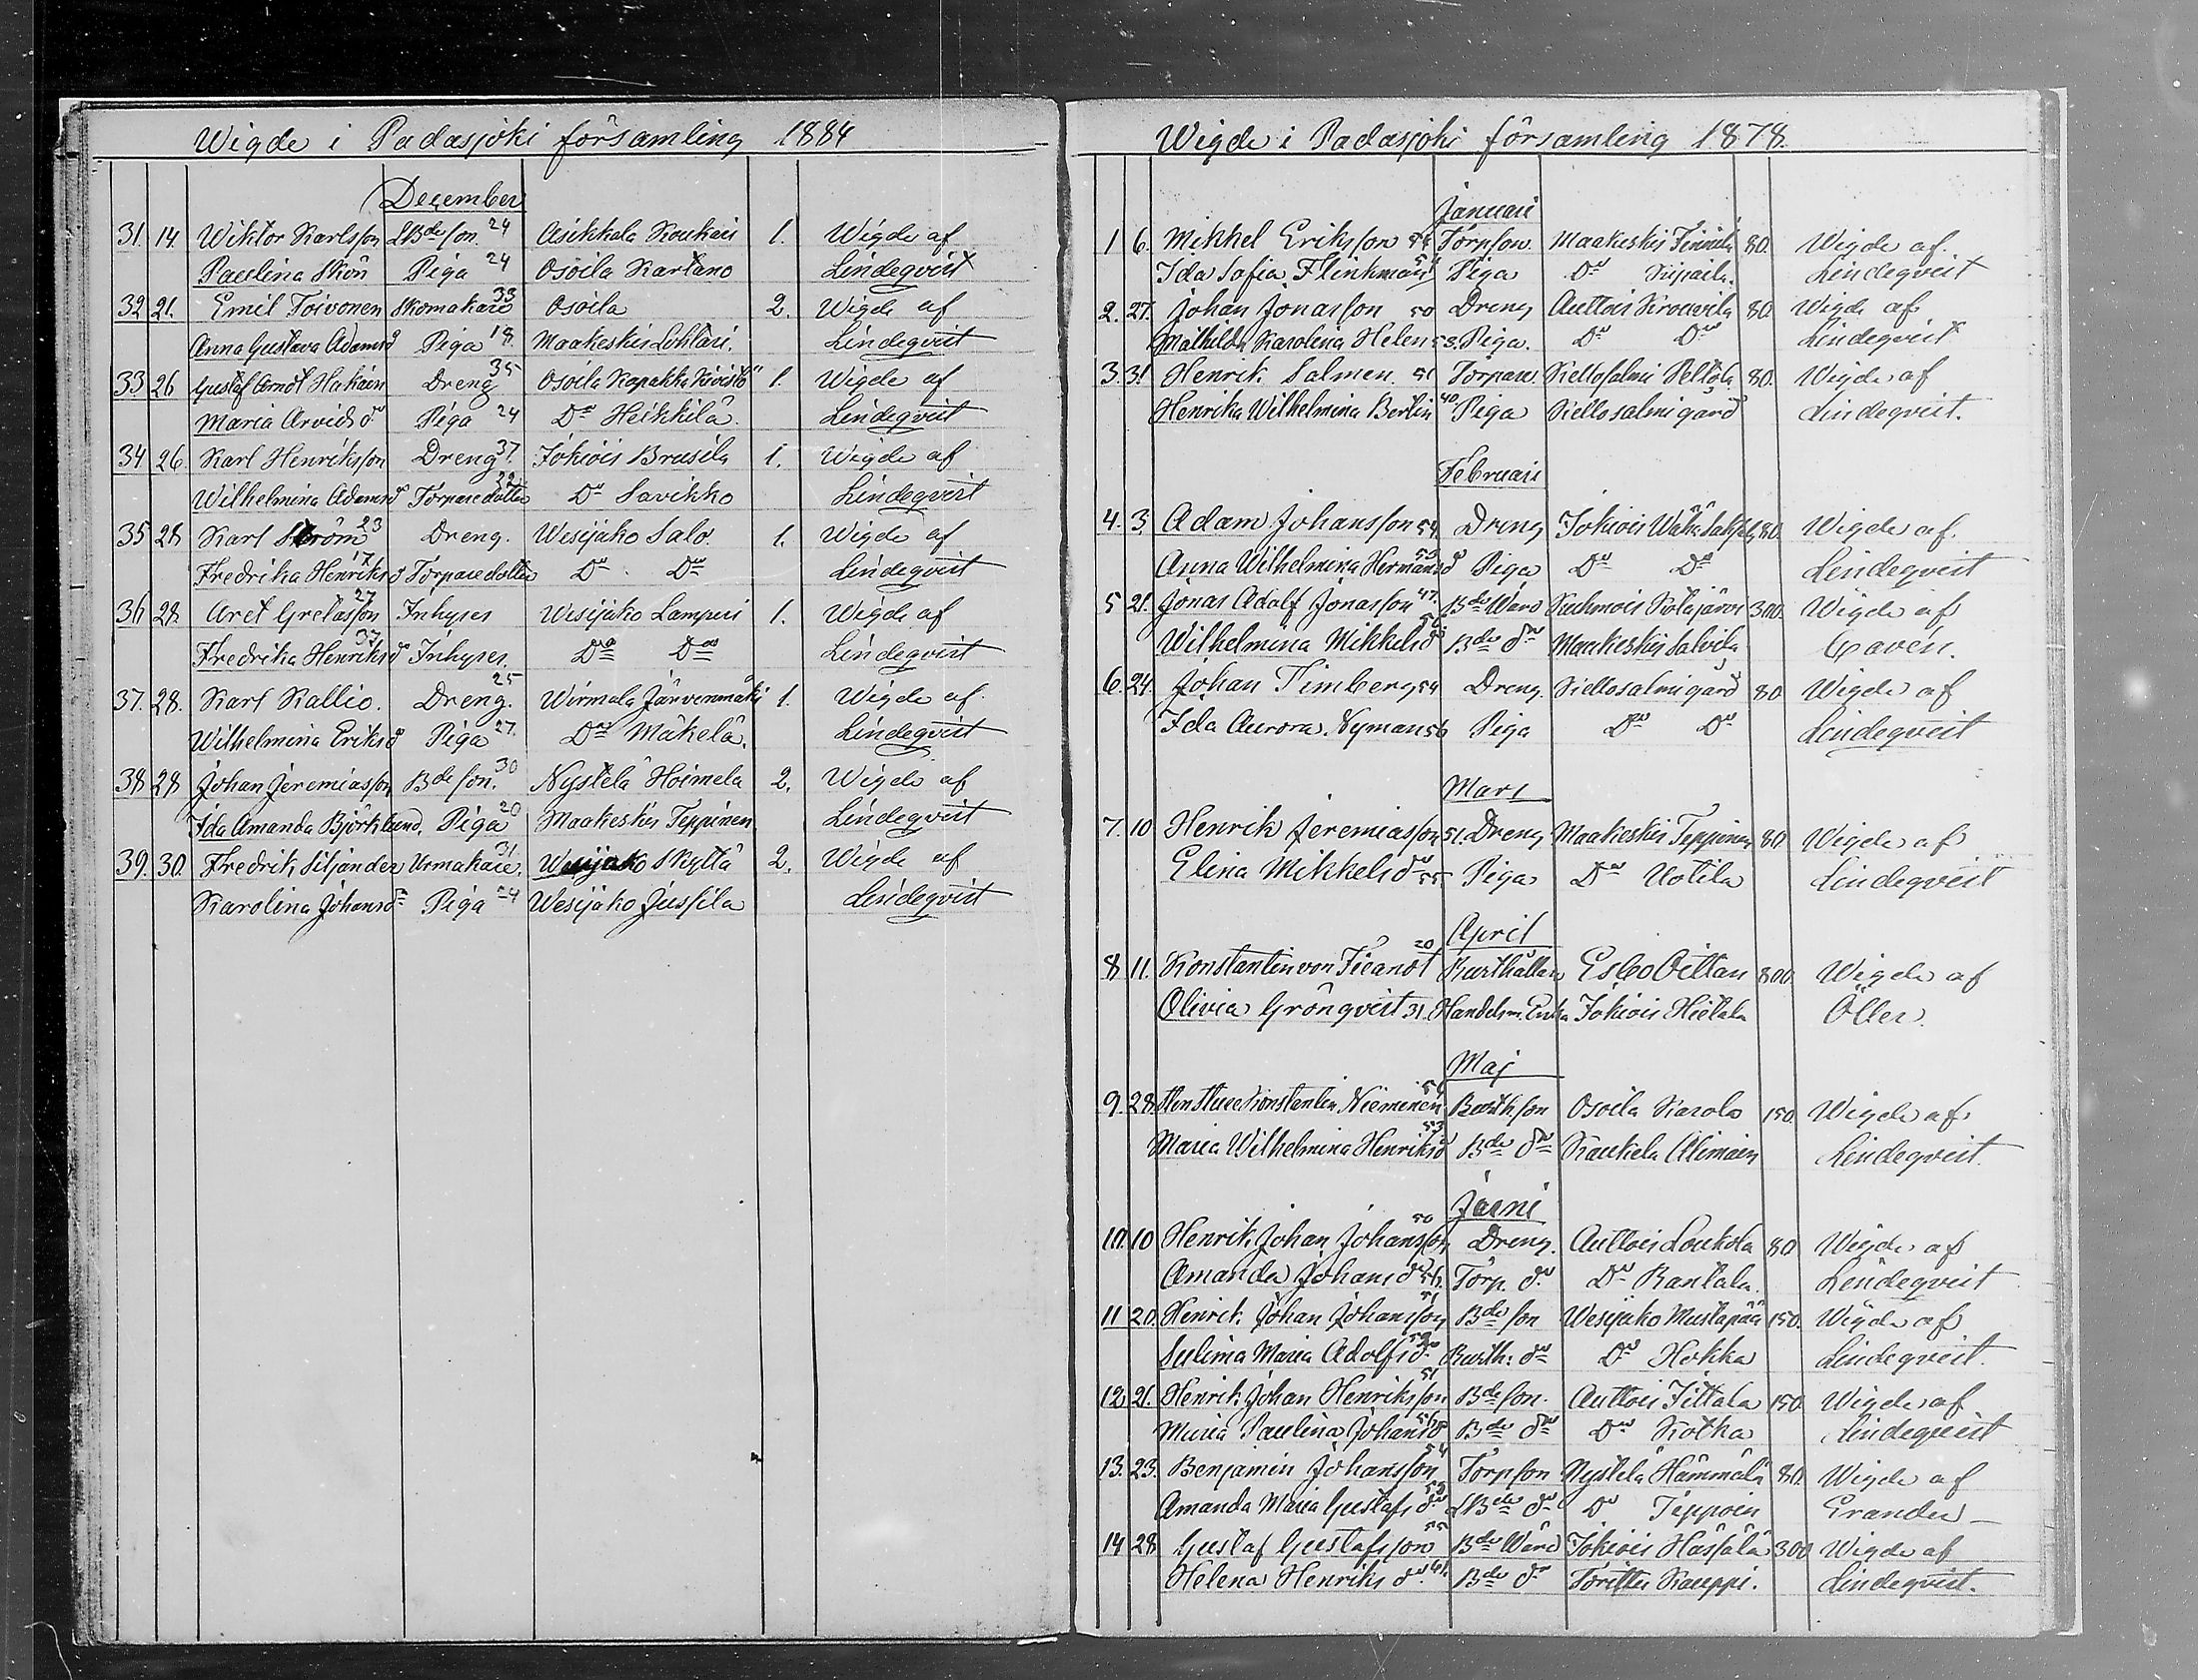 Wigde i Padasjoki församling 1884
December
31. 14. Wiktor Karlsson LBde son. 24 Asikkala Koukari 1. Wigde af
Paulina Skön Piga 24 Osoila Kartano Lindeqvist
32 21. Emil Toivonen Skomakare 33 Osoila 2. Wigde af
Anna Gustava Adamsdr Piga 18. Maakeskis Lohtari. Lindeqvist
33 26 Gustaf Arndt Hakain Dreng 35 Osoila Kapakka Kivistö 1. Wigde af
Maria Arvidsdr Piga 24 Do Heikkilä. Lindeqvist
34 26. Karl Henriksson Dreng 37. Jokiois Brusila 1. Wigde af
Wilhelmina Adamsdr Torparedotter 22 Do Savikko Lindeqvist
35 28 Karl Ström 23 Dreng. Wesijako Salo. 1. Wigde af
Fredrika Henriksdr 17 Torparedotter Do Do Lindeqvist
36 28. Aret Gretasson 27 Inhyses Wesijako Lampuri 1. Wigde af
Fredrika Henriksdr 37 Inhyses. Do Do Lindeqvist
37. 28. Karl Kallio. Dreng. 25 Wirmala Järvenmäki 1. Wigde af
Wilhelmina Eriksdr Piga 27. Do Mäkelä. Lindeqvist
38 28 Johan Jeremiasson Bde son. 30 Nystelä Hoimela 2. Wigde af
Ida Amanda Björklund, Piga 20 Maakeskis Teppinen Lindeqvist
39. 30. Fredrik Siljander Urmakare. 31 Wesijako Skyttä 2. Wigde af
Karolina Johansdr Piga 24 Wesijako Jussila Lindeqvist
Wigde i Padasjoki församling 1878.
Januari
1 6. Mikkel Eriksson Torpson. Maakeskis 80. Wigde af.
Ida Sofia Flinkman 54 Piga Do Lindeqvist
2. 27. Johan Jonasson 50 Dreng Auttois Krouvila 80. Wigde af
Mathilda Karolina Helen 53. Piga. Do Do Lindeqvist
3. 31 Henrik Salmen. 51 Torpare Kellosalmi Peltola 80. Wigde af
Henrika Wilhelmina Berlin 40 Piga Kellosalmi gård Lindeqvist.
Februari
4. 3. Adam Johansson 54 Dreng Jokiois 80. Wigde af.
Anna Wilhelmina Hermansdr 53 Piga Do Do Lindeqvist
5 21. Jonas Adolf Jonasson 47. Bde Wärd Kuhmois Kotajärvi 300. Wigde af
Wilhelmina Mikkelsdr 56 Bde dr Maakeskis Salvila Cavén.
6. 24. Johan Timberg 54 Dreng. Kellosalmi gård 80 Wigde af
Ida Aurora. Nyman 56 Piga Do Do Lindeqvist
Mars
7. 10 Henrik Jeremiasson 51. Dreng Maakeskis Teppinen 80 Wigde af
Elina Mikkelsdr 55 Piga Do Uotila Lindeqvist
April
8 11. Konstantin von Fieandt 20 Busthållare Esbo Oittan 800. Wigde af
Olivia Grönqvist 31. Handelsm. Enka Jokiois Hietala Öller.
Maj
9. 28. Konstantin Nieminen 51 Busthson Osoila Karola 150. Wigde af
Maria Wilhelmina Henriksdr 53 Bde dr Kaukela Alimain Lindeqvist.
Juni
10. 10 Henrik Johan Johansson 50 Dreng. Auttois Loukola 80 Wigde af
Amanda Johansdr 56. Torp. dr Do Rantala. Lindeqvist
11 20. Henrik Johan Johansson 51 Bde son Wesijako Mustapää 150. Wigde af
Sulima Maria Adolfsdr 59 Busth: dr Do Hokka Lindeqvist.
12 21. Henrik Johan Henriksson 51 Bde son. Auttois Iittala 150. Wigde af
Maria Paulina Johansdr 56 Bde dr Do Kotka Lindeqvist
13. 23. Benjamin Johansson 54 Torpson Nystelä Hämmälä 80. Wigde af
Amanda Maria Gustafsdr 59 LBde dr Do Teppoin Grander
14 28 Gustaf Gustafsson 55 Bde Wärd Jokiois Hassala 300 Wigde af
Helena Henriksdr 61. Bde dr Torittu Kauppi. Lindeqvist.